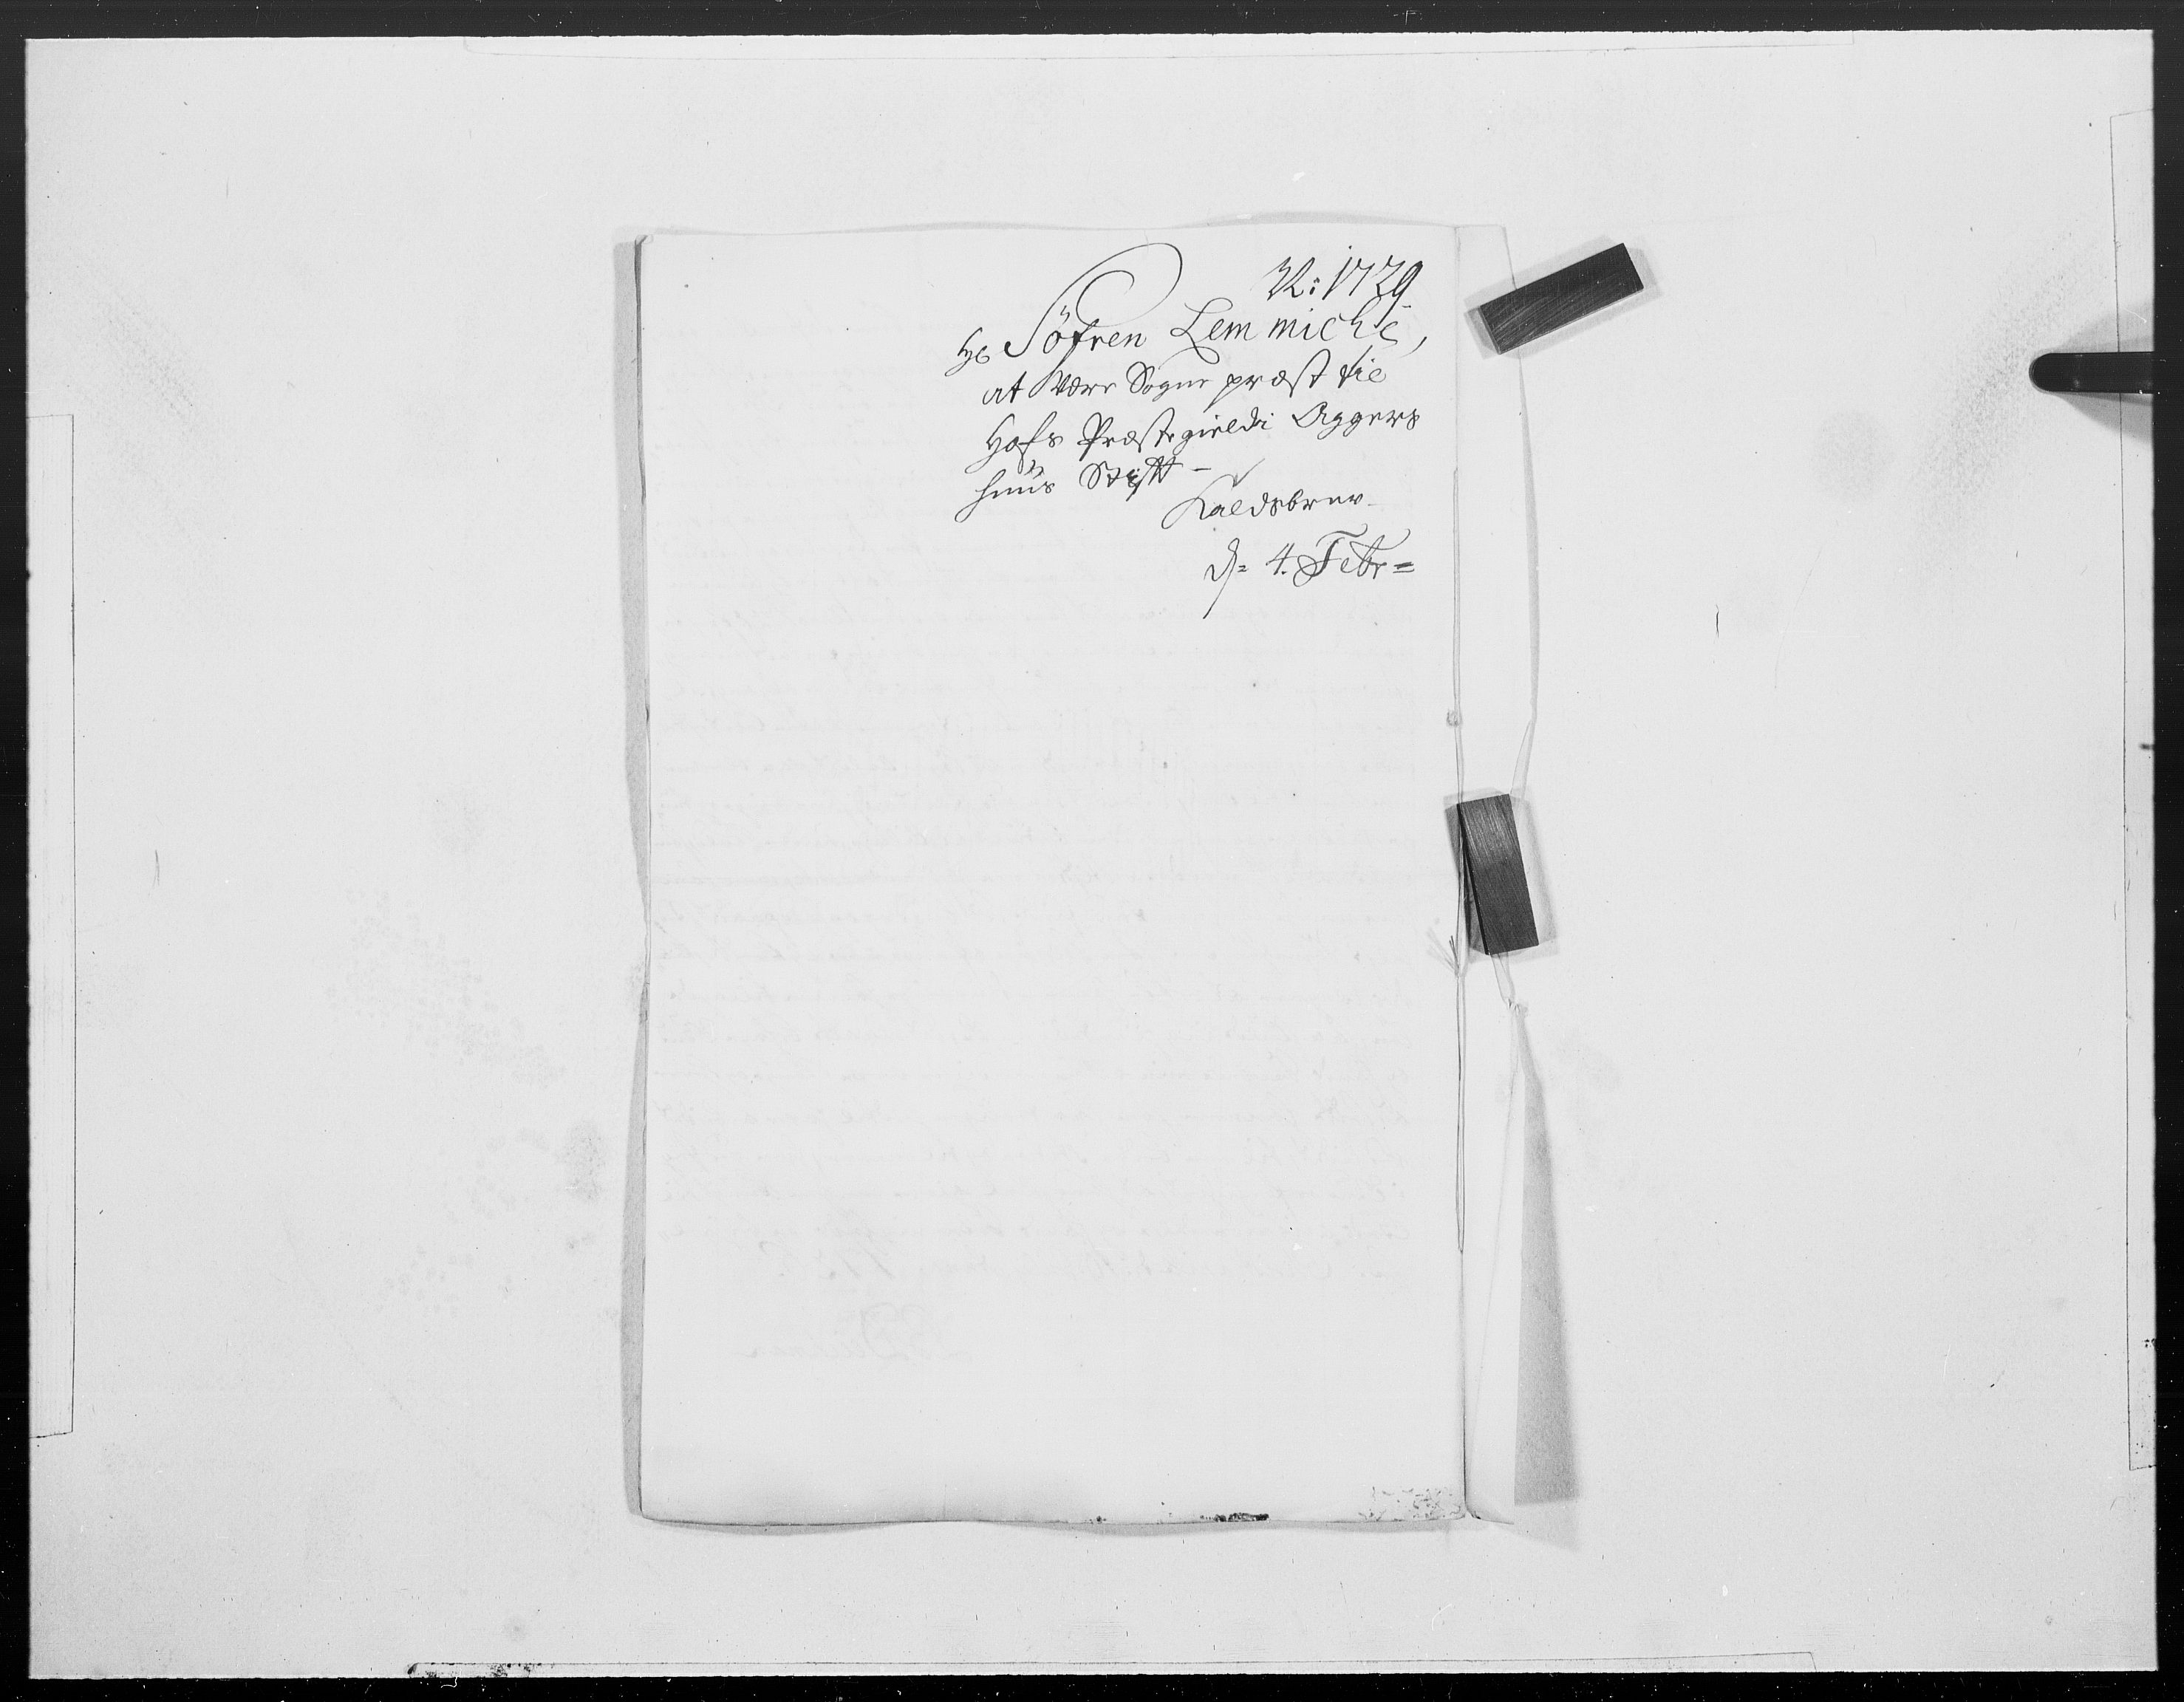 N: 1729
Hr Söfren Lemmiche,
at være Sogne præst til
Hofs Præstegield i Aggers
huus Stift
Kaldsbrev
d= 4. Febr=